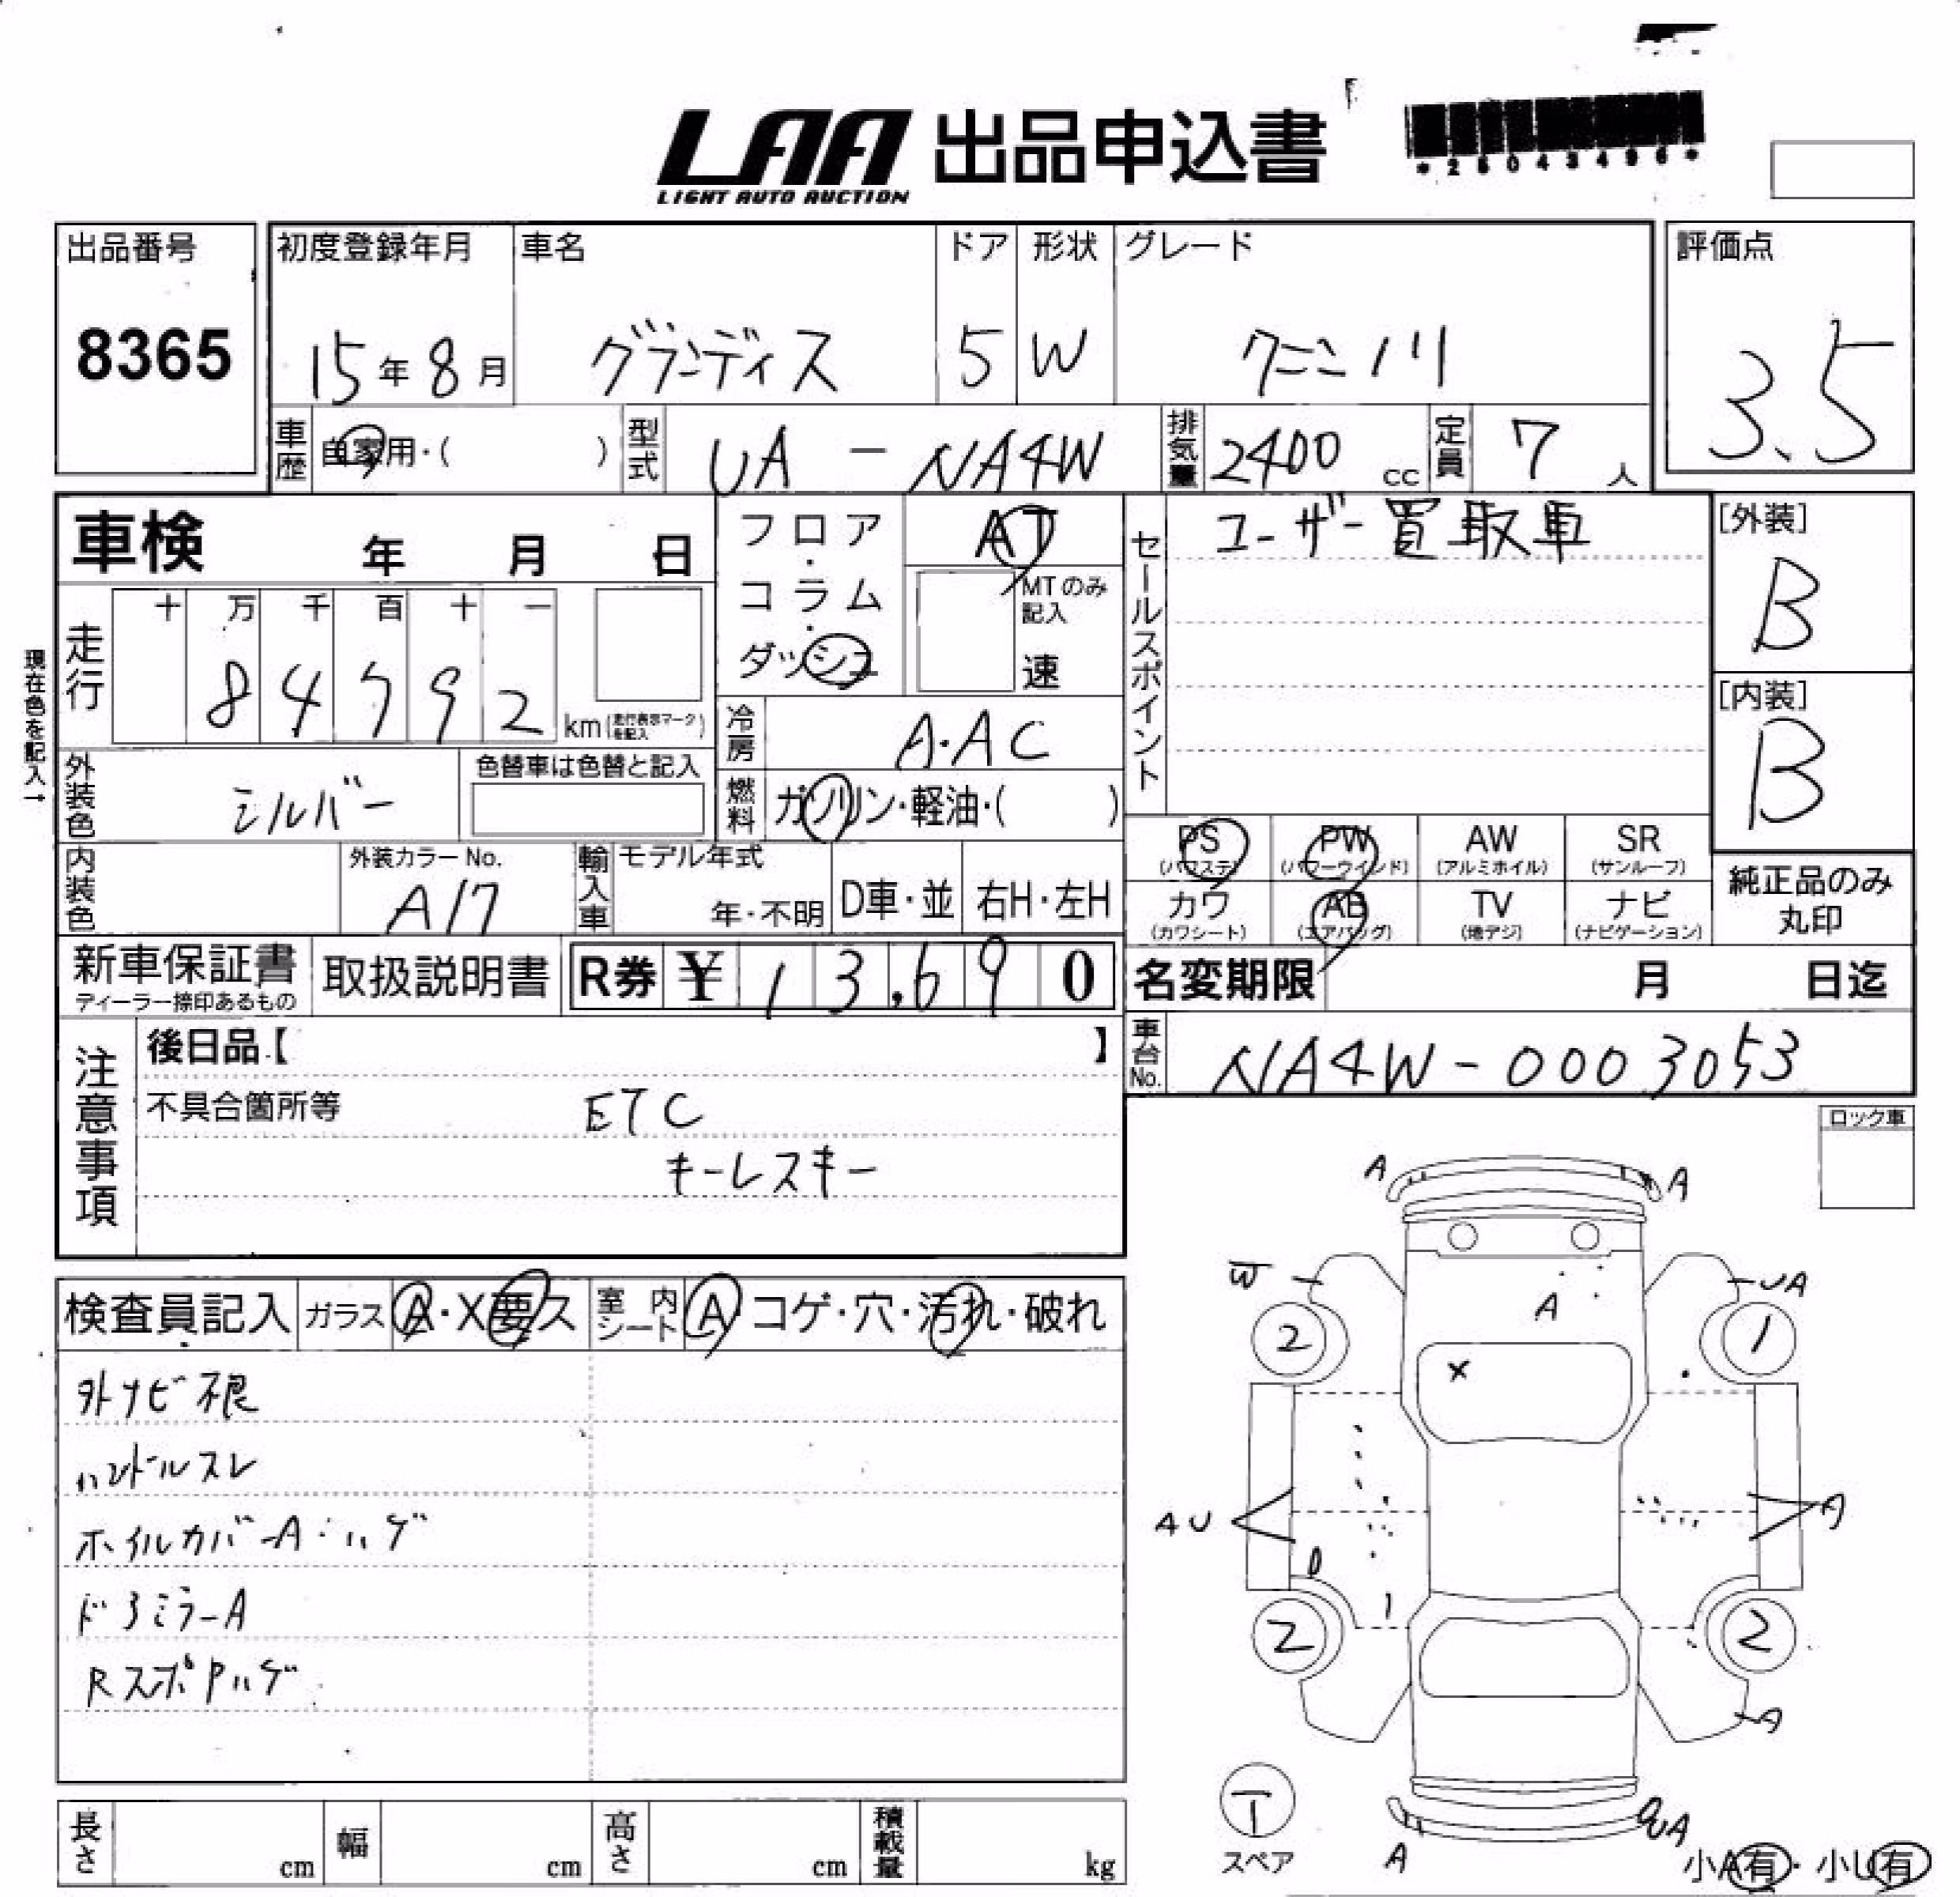 LAA 出品申込書
LIGHT AUTO AUCTION
出品番号 初度登録年月 車名 ドア 形状 グレード 評価点
8365 15年8月 グランディス 5 W 3.5
車歴 自家用・( ) 型式 UA - NA4W 排気量 2400 cc 定員 7 人
車検 年 月 日
フロア・コラム・ダッシュ
AT
MTのみ記入
速
セールスポイント
ユーザー買取車
[外装]
B
[内装]
B
現在色を記入→
走行
十 万 千 百 十 一
8 4 7 9 2 km(走行表示マークを記入)
冷房 A・AC
外装色 シルバー 色替車は色替と記入
燃料 ガソリン・軽油・( )
内装色 外装カラーNo. A17 輸入車 モデル年式 年・不明 D車・並 右H・左H
PS (パワステ) PW (パワーウインド) AW (アルミホイル) SR (サンルーフ)
カワ (カワシート) AB (エアバッグ) TV (地デジ) ナビ (ナビゲーション)
純正品のみ丸印
新車保証書 ディーラー捺印あるもの 取扱説明書 R券 ¥ 13,690
名変期限 月 日迄
車台No. NA4W-0003053
注意事項
後日品【 】
不具合箇所等 ETC
キーレスキー
ロック車
検査員記入 ガラス A・X要ス 室内シート A コゲ・穴・汚れ・破れ
外サビ 根
ハンドルスレ
ホイルカバーA・ハゲ
ドアミラーA
RスポPハゲ
A A
W UA
A
2 1
X
AU A
2 2
A
スペア
A UA
小A有・小U有
長さ cm 幅 cm 高さ cm 積載量 kg